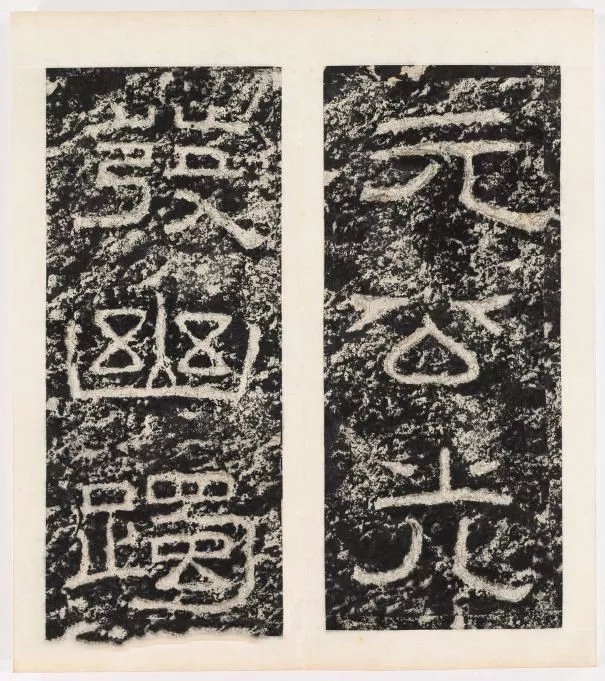 元公光
發幽躅